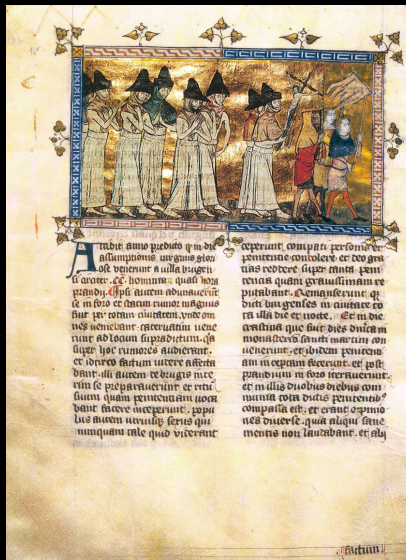 Accidit anno predicto q in die
assumptionis virginis glori
ose venerunt a villa brugen
si circiter .cc. homines quasi hora
prandij. Ipsi autem adunaverunt
se in foro et statim rumor magnus
fuit per totam civitatem. unde om
nes veniebant catervatim vene
runt ad locum supradictum. qa
super hoc rumores audierant.
et idcirco factum videre affecta
bant. illi autem de brugis inte
rim se preparaverunt et ritu
suum quam penitentiam voca
bant facere inceperunt. popu
lus autem utriusq sexus qui
nunquam tale quid viderant
ceperunt compati personis et
penitentie condolere et deo gra
tias reddere super tanta peni
tentia quam gravissimam re
putabant. Remanserunt q
dicti burgenses in civitate to
ta illa die et nocte. Et in die
crastina que fuit dies dnica in
monasterio sancti martini con
venerunt. et ibidem penitenti
am inceptam fecerunt. et post
prandium in foro iteraverunt.
et in illis duobus diebus com
munia tota dictis penitentib9
compassa est. et erant opinio
nes diverse. quia aliqui sane
mentis non laudabant. et alij
factum